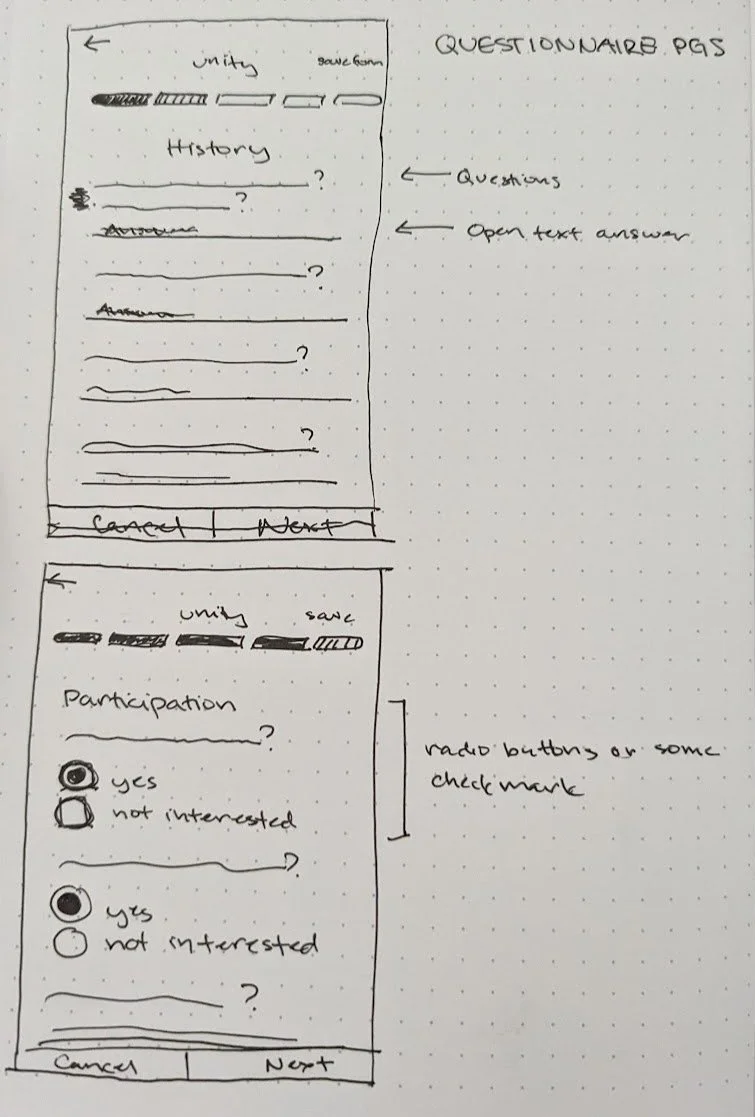 QUESTIONNAIRE PGS
←
unity
save form
History
?
← Questions
?
← Open text answer
?
?
?
Cancel Next
←
unity save
Participation
?
radio buttons or some
check mark
yes
not interested
?
yes
not interested
?
Cancel Next